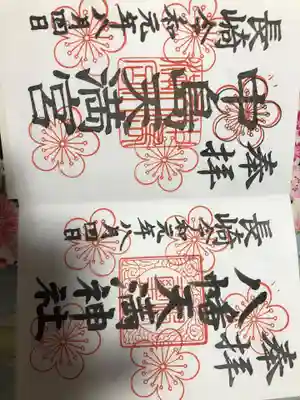 奉拝
中島天満宮
長崎 令和元年八月四日
奉拝
八幡天満神社
長崎 令和元年八月四日